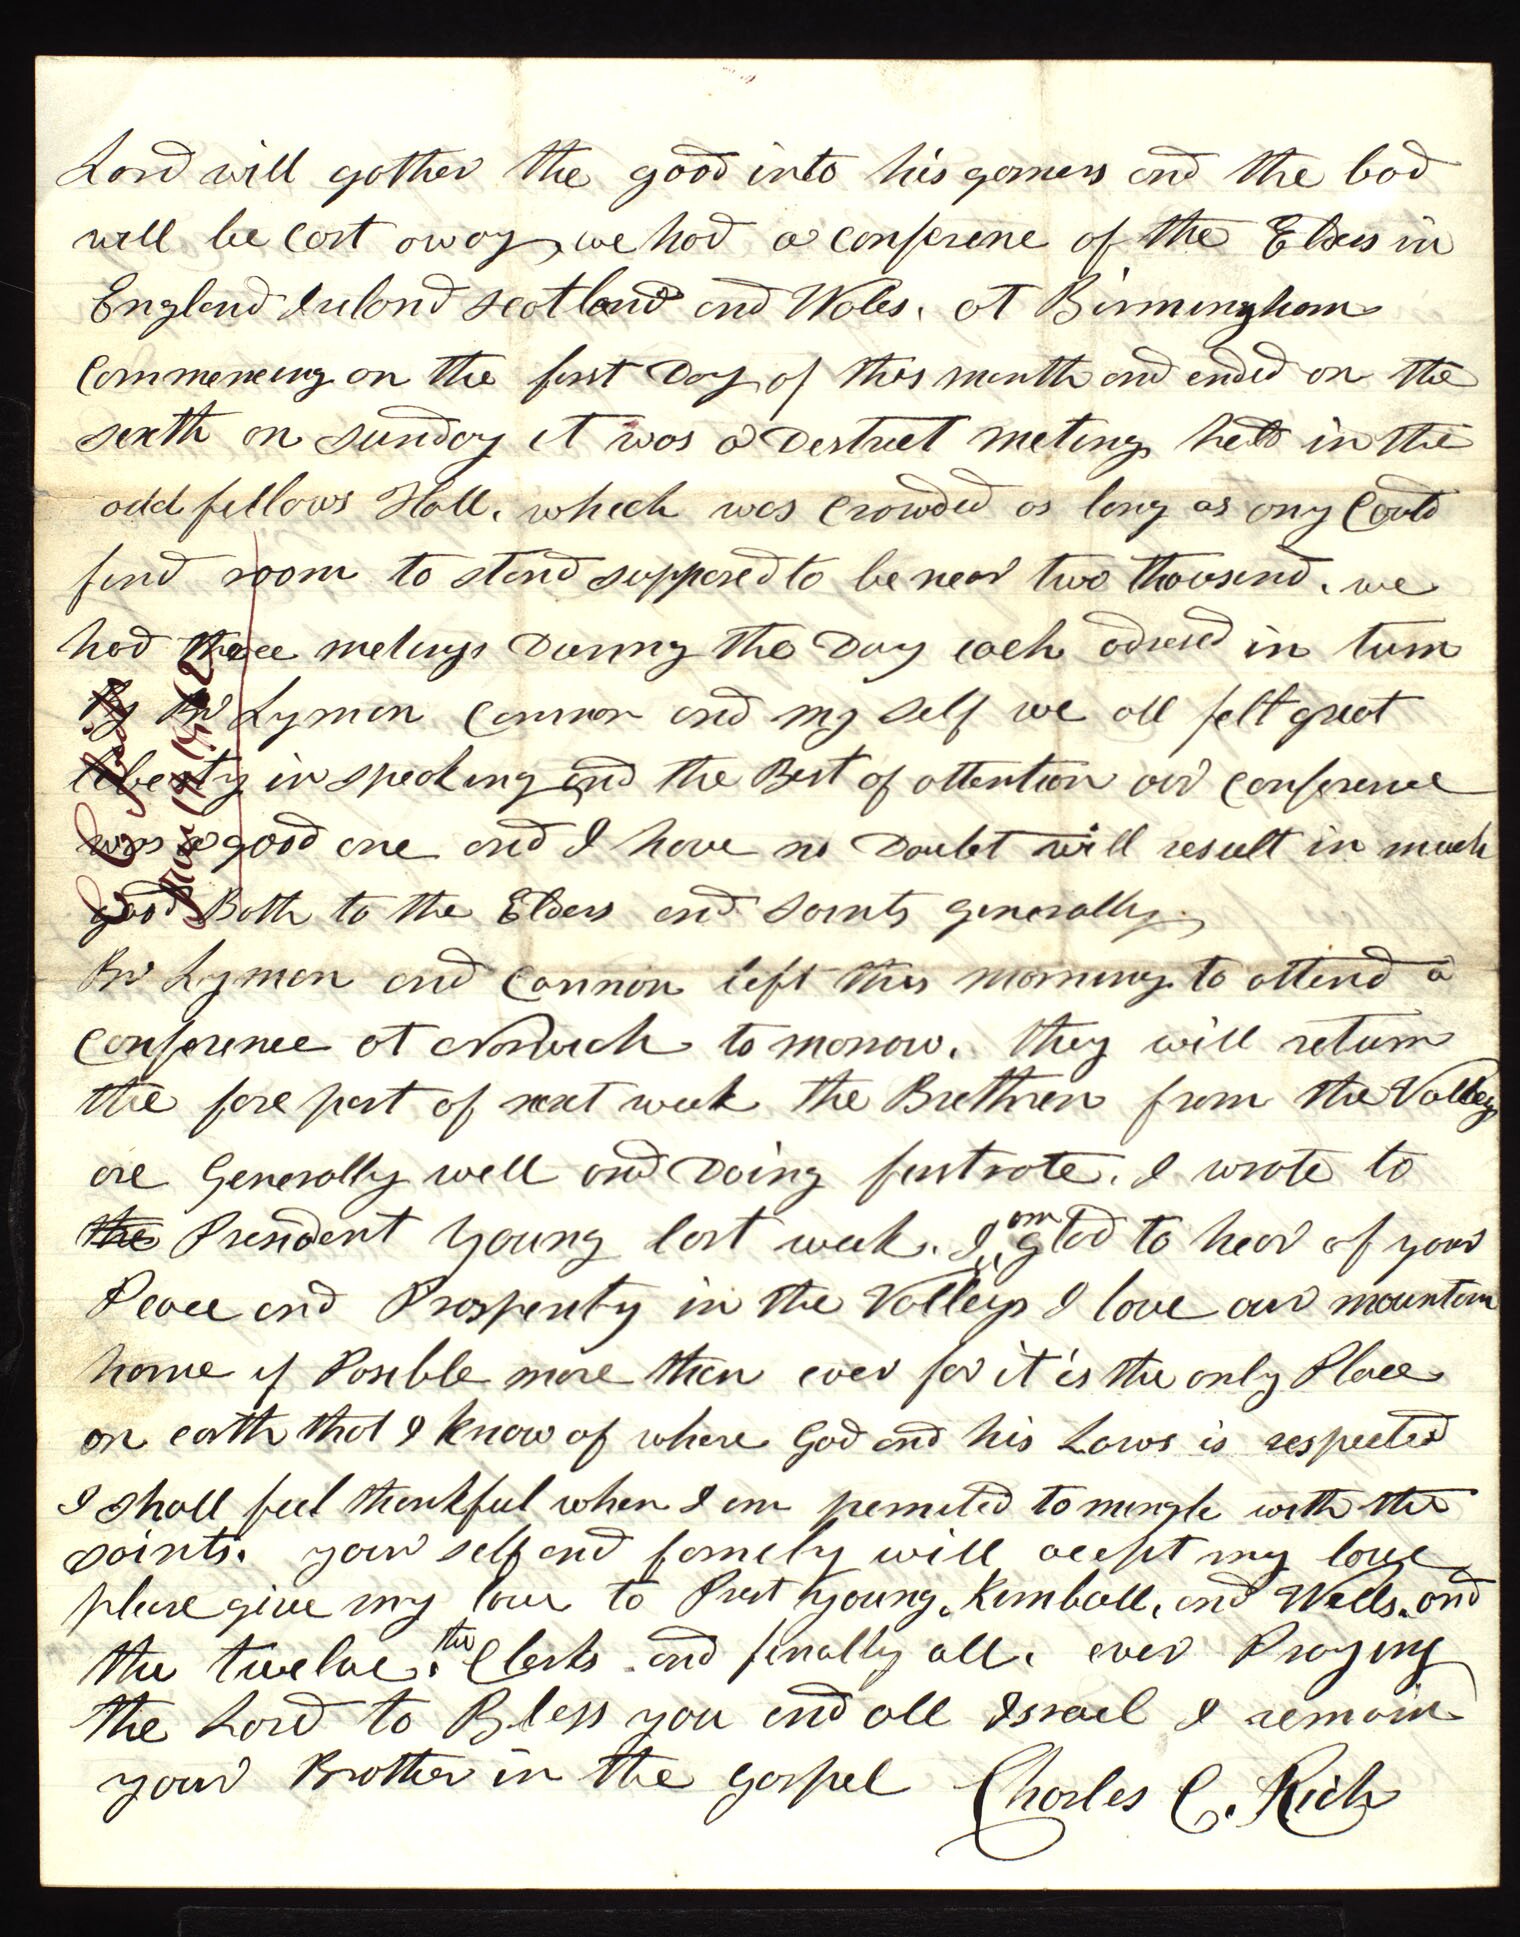 Lord will gather the good into his garners and the bad
will be cast away, we had a conferene of the Elders in
England Ireland Scotland and Wales. at Birmingham
Commencing on the first Day of this month and ended on the
sixth on sunday it was a Destrict meting held in the
odd fellows Hall. which was Crowded as long as any Could
find room to stand supposed to be near two thousand. we
had three metings During the Day each adresed in turn
By Brs Lyman Cannon and my self we all felt great
liberty in speaking and the Best of attention our Conference
was a good one and I have no Doubt will result in much
good Both to the Elders and Saints generally.
Brs Lyman and Cannon left this morning to attend a
Conference at Norwich to morrow. they will return
the fore part of next week the Brethren from the Valley
are Generally well and Doing first rate. I wrote to
the President Young last week. I am glad to hear of your
Peace and Prosperity in the Valleys I love our mountain
home if Posible more then ever for it is the only Place
on earth that I know of where God and his Laws is respected
I shall feel thankful when I am permited to mingle with the
saints. your self and family will acept my love
please give my love to Prest Young. Kimball. and Wells. and
the twelve. the Clerks and finally all. ever Praying
the Lord to Bless you and all Israel I remain
your Brother in the Gospel Charles C. Rich
C C Rich